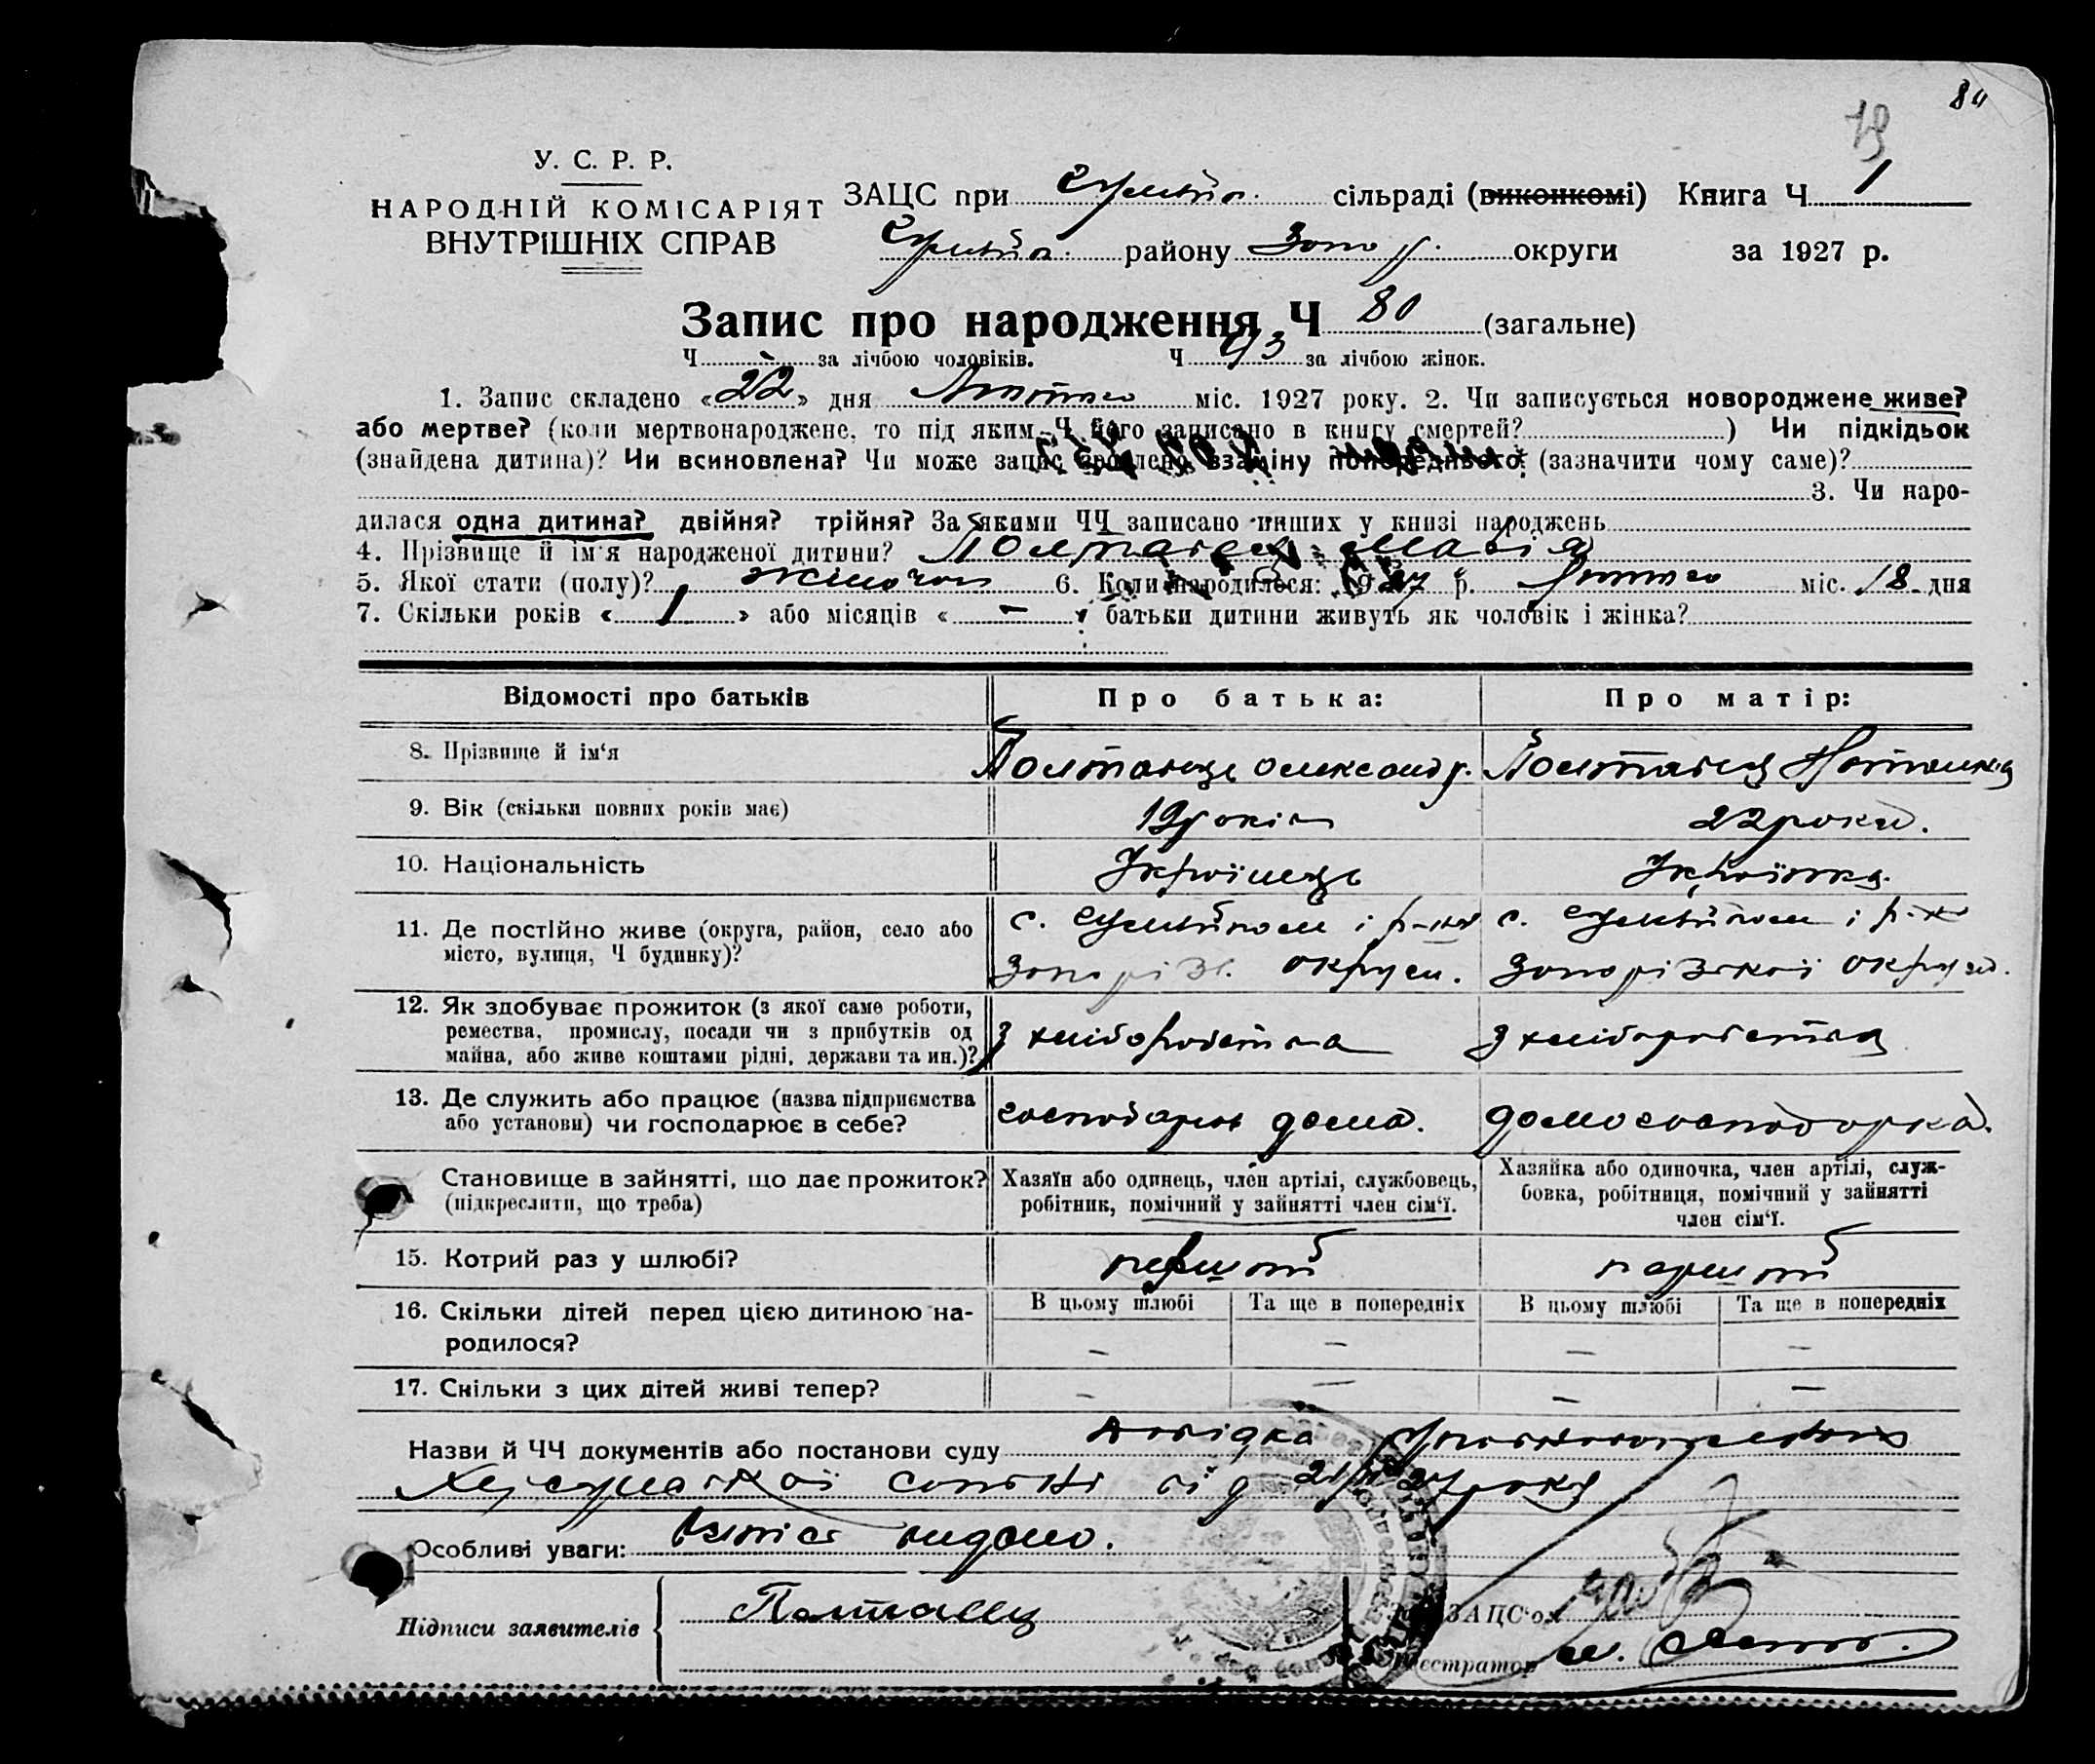 84
79
У. С. Р. Р.
НАРОДНІЙ КОМІСАРІЯТ
ВНУТРІШНІХ СПРАВ
ЗАЦС при сільраді (виконкомі) Книга Ч 1
району Запор. округи за 1927 р.
Запис про народження Ч 80 (загальне)
Ч - за лічбою чоловіків. Ч 43 за лічбою жінок.
1. Запис складено «22» дня Лютого міс. 1927 року. 2. Чи записується новороджене живе?
або мертве? (коли мертвонароджене, то під яким Ч його записано в книгу смертей? ) Чи підкідьок
(знайдена дитина)? Чи всиновлена? Чи може запис зроблено взаміну попереднього: (зазначити чому саме)?
3. Чи наро-
дилася одна дитина? двійня? трійня? За якими ЧЧ записано инших у книзі народжень
4. Прізвище й ім'я народженої дитини? Полтавец Марія
5. Якої стати (полу)? жіночої 6. Коли народилося: 1927 р. Лютого міс. 18 дня
7. Скільки років «1» або місяців «-» батьки дитини живуть як чоловік і жінка?
Відомості про батьків Про батька: Про матір:
8. Прізвище й ім'я Полтавець Олександр. Полтавец Наталка
9. Вік (скільки повних років має) 19 років 22 роки.
10. Національність Українець Українка.
11. Де постійно живе (округа, район, село або
місто, вулиця, Ч будинку)?
с. і р-на
Запоріз. округи.
с. і р-на
Запорізької округи.
12. Як здобуває прожиток (з якої саме роботи,
ремества, промислу, посади чи з прибутків од
майна, або живе коштами рідні, держави та ин.)?
З хліборобства З хліборобства
13. Де служить або працює (назва підприємства
або установи) чи господарює в себе?
господарює дома. домогосподарка.
Становище в зайнятті, що дає прожиток?
(підкреслити, що треба)
Хазяїн або одинець, член артілі, службовець,
робітник, помічний у зайнятті член сім'ї.
Хазяйка або одиночка, член артілі, служ-
бовка, робітниця, помічний у зайнятті
член сім'ї.
15. Котрий раз у шлюбі? перший перший
16. Скільки дітей перед цією дитиною на-
родилося?
В цьому шлюбі Та ще в попередніх В цьому шлюбі Та ще в попередніх
– – – –
17. Скільки з цих дітей живі тепер? – – – –
Назви й ЧЧ документів або постанови суду Довідка
сотні від 27 року
Особливі уваги: видано.
Підписи заявителів Полтавец
ЗАЦС'ом
Реєстратор